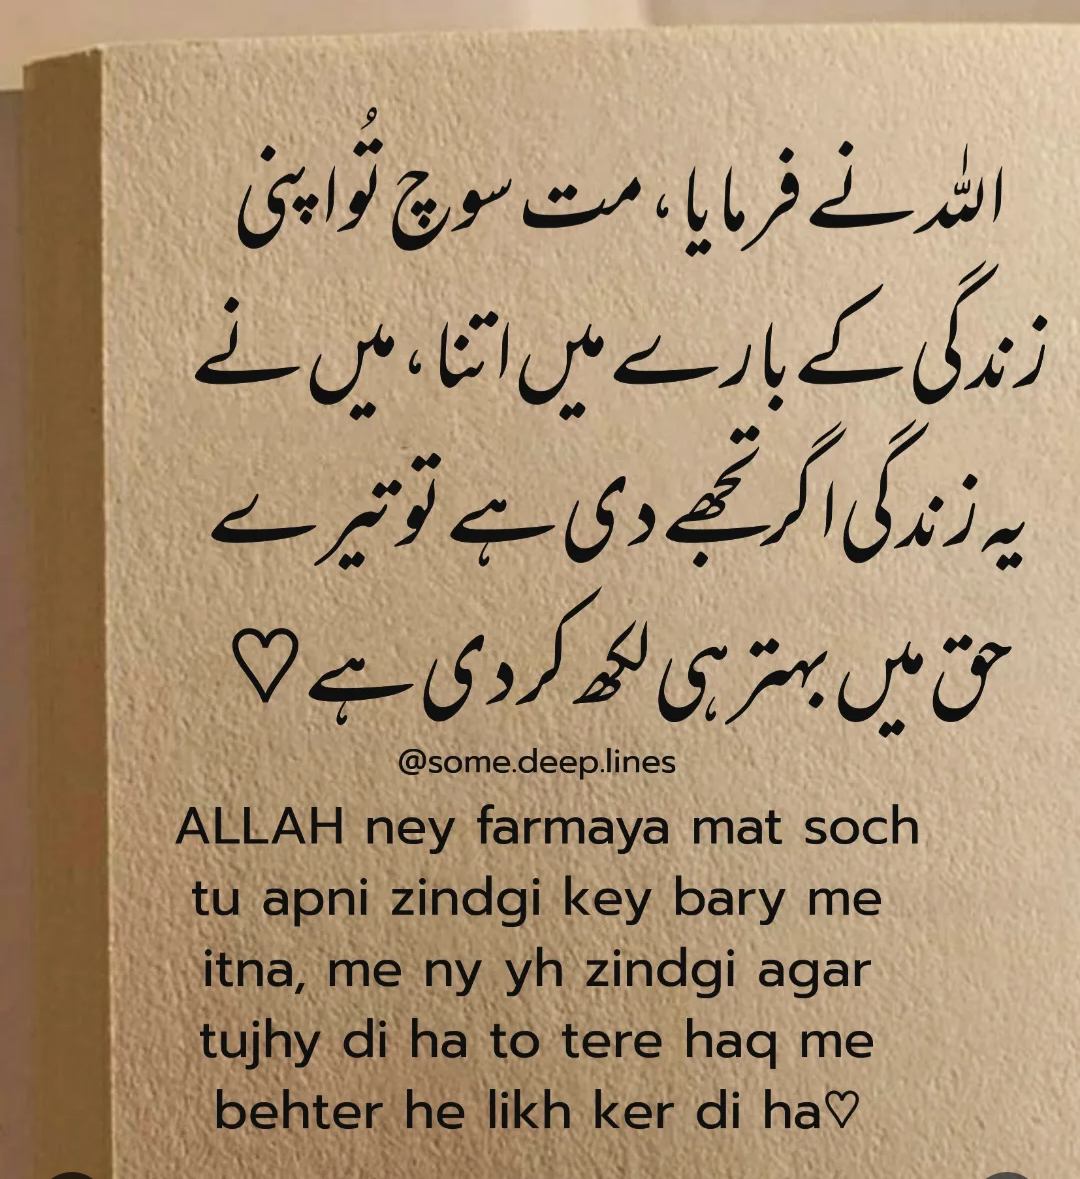 اللہ نے فرمایا، مت سوچ تُو اپنی
زندگی کے بارے میں اتنا، میں نے
یہ زندگی اگر تجھے دی ہے تو تیرے
حق میں بہتر ہی لکھ کر دی ہے♡
@some.deep.lines
ALLAH ney farmaya mat soch
tu apni zindgi key bary me
itna, me ny yh zindgi agar
tujhy di ha to tere haq me
behter he likh ker di ha♡